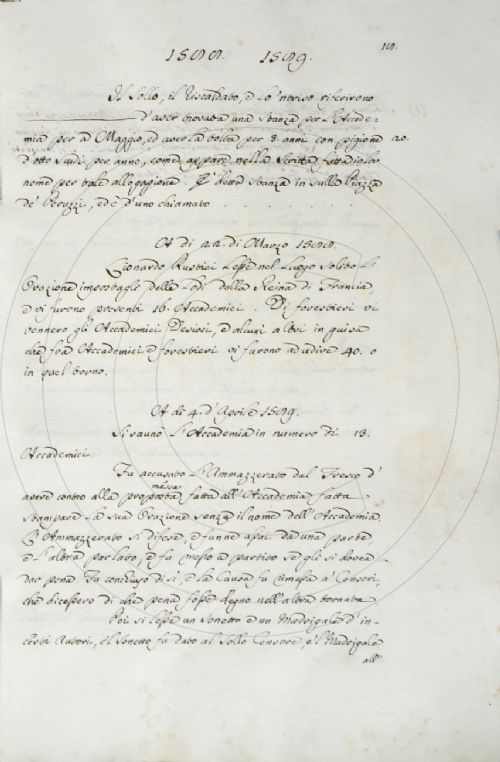 1588. 1589.
Il Sollo, il Riscaldato, e lo 'ntriso riferirono
d'aver trovata una stanza per l'Accade-
mia per a Maggio, ed aver la tolta per 3 anni con pigione
d'otto scudi per anno, come appare nella scritta fatta in lor
nome per tale allogagione. E' detta stanza in sulla Piazza
de' Peruzzi, ed è d'uno chiamato . . . . . .
A dì 22. di Marzo 1588.
Lionardo Rustici lesse nel luogo solito
Orazione impostagli delle Lodi della Reina di Francia
e vi furono presenti 16. Accademici. Di forestieri vi
vennero gli Accademici Desiosi, e alcuni altri in guisa
che fra Accademici e forestieri vi furono ad udire 40. o
in quel torno.
A dì 4. d'Aprile 1589.
Si raunò l'Accademia in numero di 13.
Accademici.
Fu accusato l'Ammazzerato dal Fresco d'
avere contro alla promessa fatta all'Accademia fatta
stampare la sua Orazione senza il nome dell'Accademia.
L'Ammazzerato si difese, e funne assai da una parte
e l'altra parlato, e fu messo a partito se gli si dovea
dar pena. Fu concluso di sì, e la causa fu rimessa a' Censori,
che dicessero di che pena fosse degno nell'altra tornata.
Poi si lesse un Sonetto e un Madrigale d' in-
certi Autori, e 'l Sonetto fu dato al Sollo Censore, e 'l Madrigale
all'